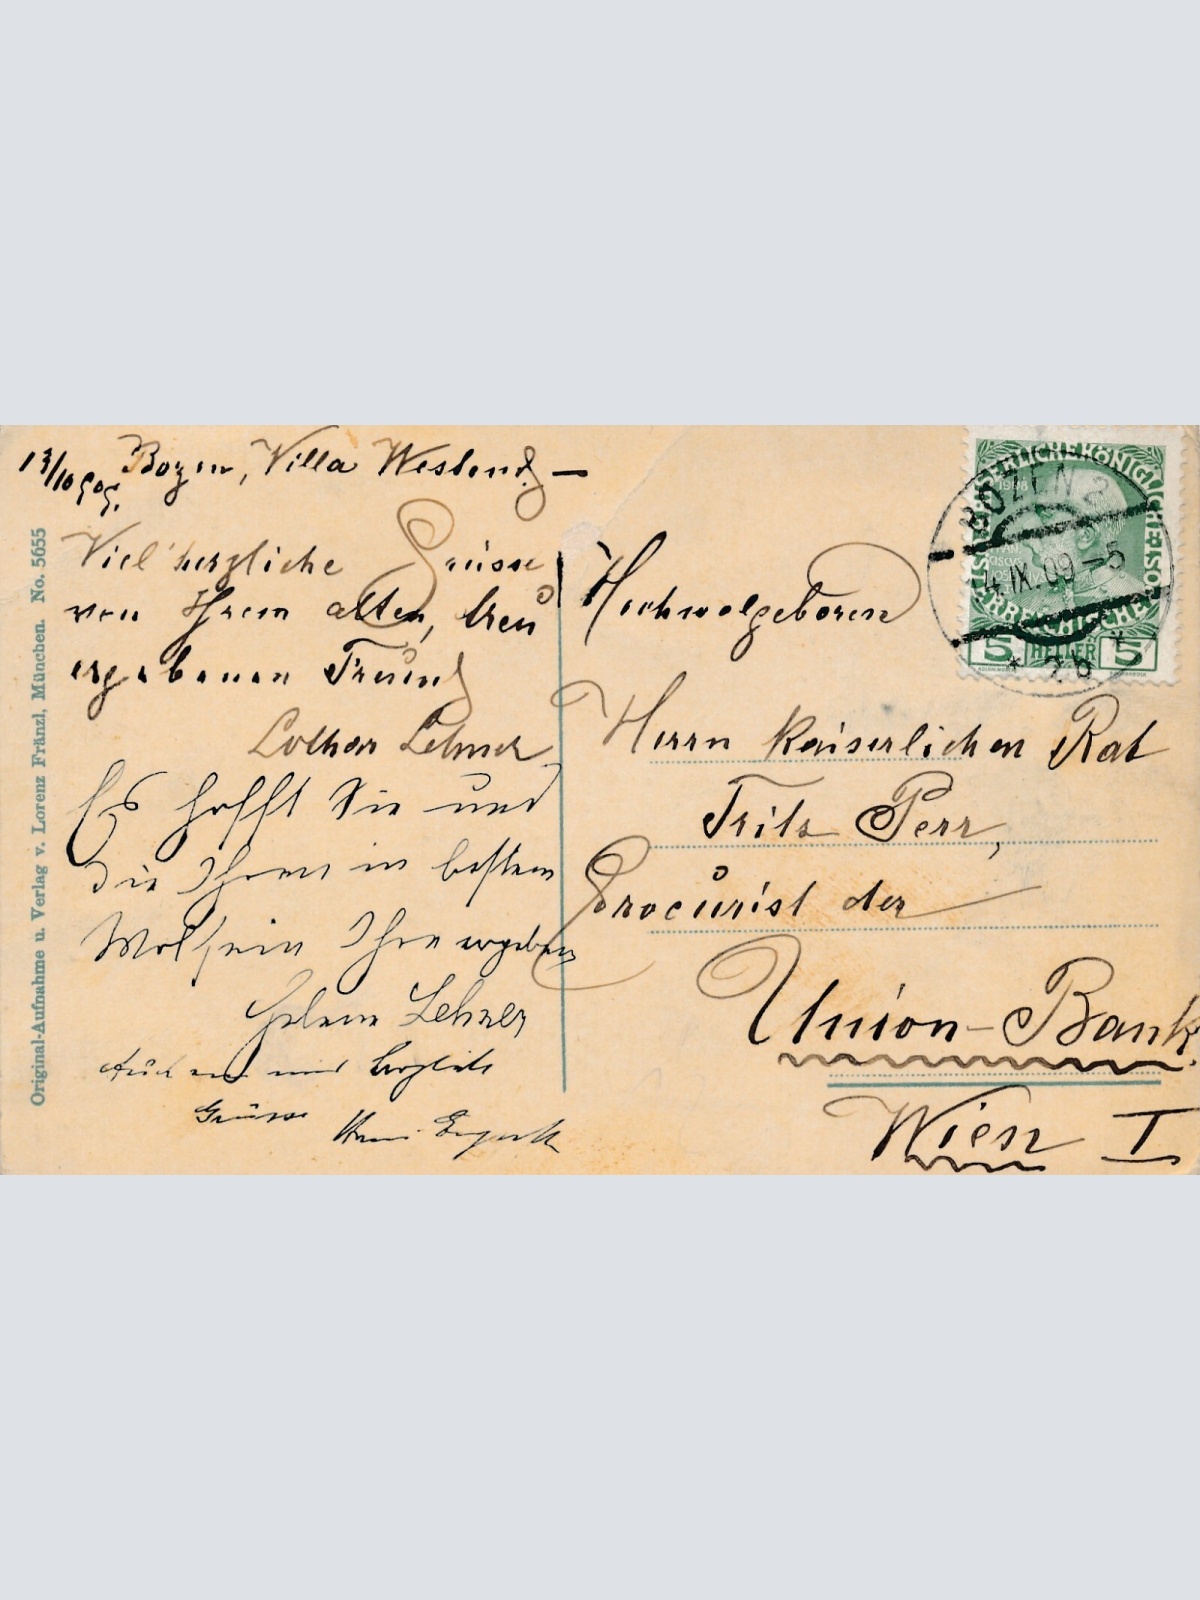 13/10 909.
Bozen, Villa Westend. –
Viel herzliche Grüsse
von Ihrem alten, treu
ergebenen Freund
Lothar Lehner
Es hofft Sie und
die Ihren in bestem
Wolsein Ihre ergeben
Helene Lehner
Auch von mir herzlich
Grüsse
Hochwolgeboren
Herrn Kaiserlichen Rat
Fritz Perr,
Procurist der
Union-Bank.
Wien I
Original-Aufnahme u. Verlag v. Lorenz Fränzl, München. No. 5655
KAISERLICHE KÖNIGLICHE
ÖSTERREICHISCHE POST
1908
5 HELLER 5
BOZEN 2
4 IX 09 – 5
* 2b *